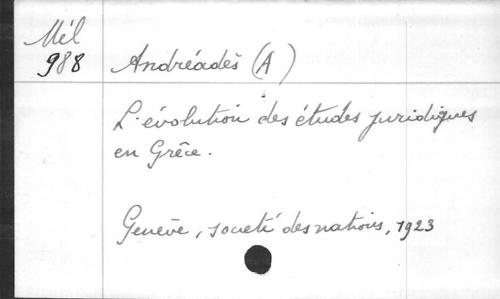 Mél
988
Andréadès (A)
L'évolution des études juridiques
en Grèce.
Genève, société des nations, 1923